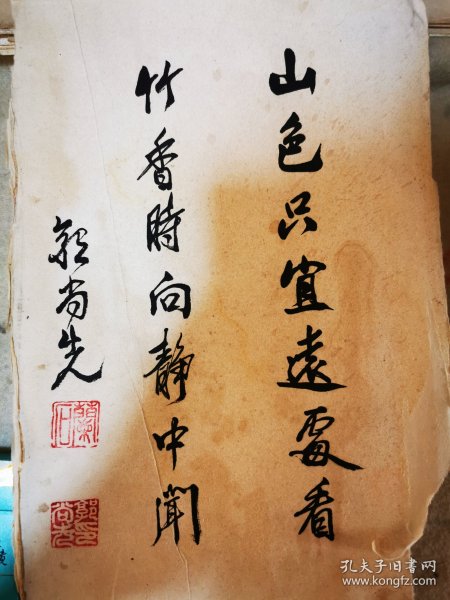 山色只宜遠處看
竹香時向静中聞
郭尚先
蘭石
郭印尚先
孔夫子旧书网
www.kongfz.com